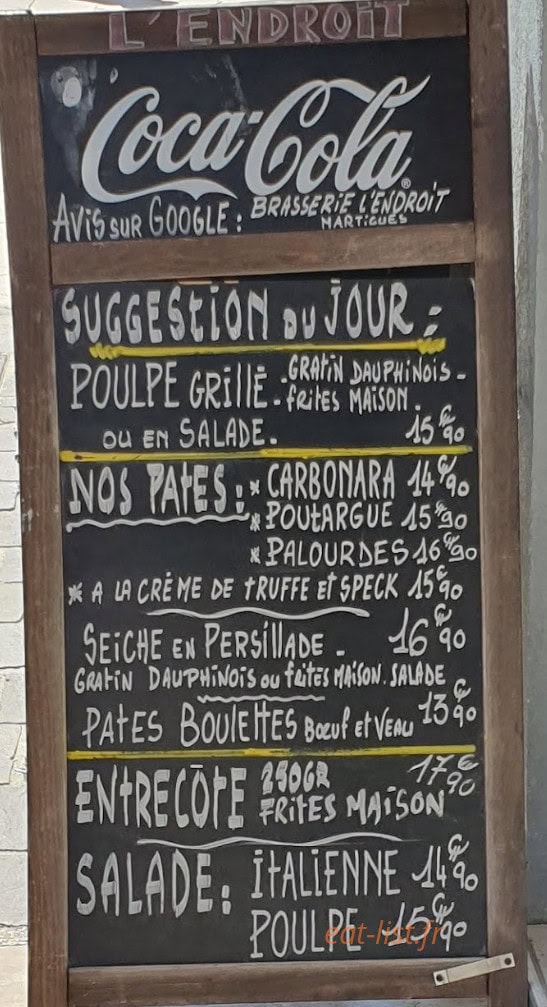 L'ENDROIT
Coca-Cola®
AVIS SUR GOOGLE : BRASSERIE L'ENDROIT
MARTIGUES
SUGGESTION DU JOUR :
POULPE GRILLÉ - GRATIN DAUPHINOIS -
- FRITES MAISON.
OU EN SALADE. 15€90
NOS PATES : * CARBONARA 14€90
* POUTARGUE 15€90
* PALOURDES 16€90
* A LA CRÈME DE TRUFFE ET SPECK 15€90
SEICHE EN PERSILLADE - 16€90
GRATIN DAUPHINOIS OU FRITES MAISON. SALADE
PATES BOULETTES BŒUF ET VEAU 13€90
ENTRECÔTE 250GR 17€90
FRITES MAISON
SALADE : ITALIENNE 14€90
POULPE 15€90
eat-list.fr